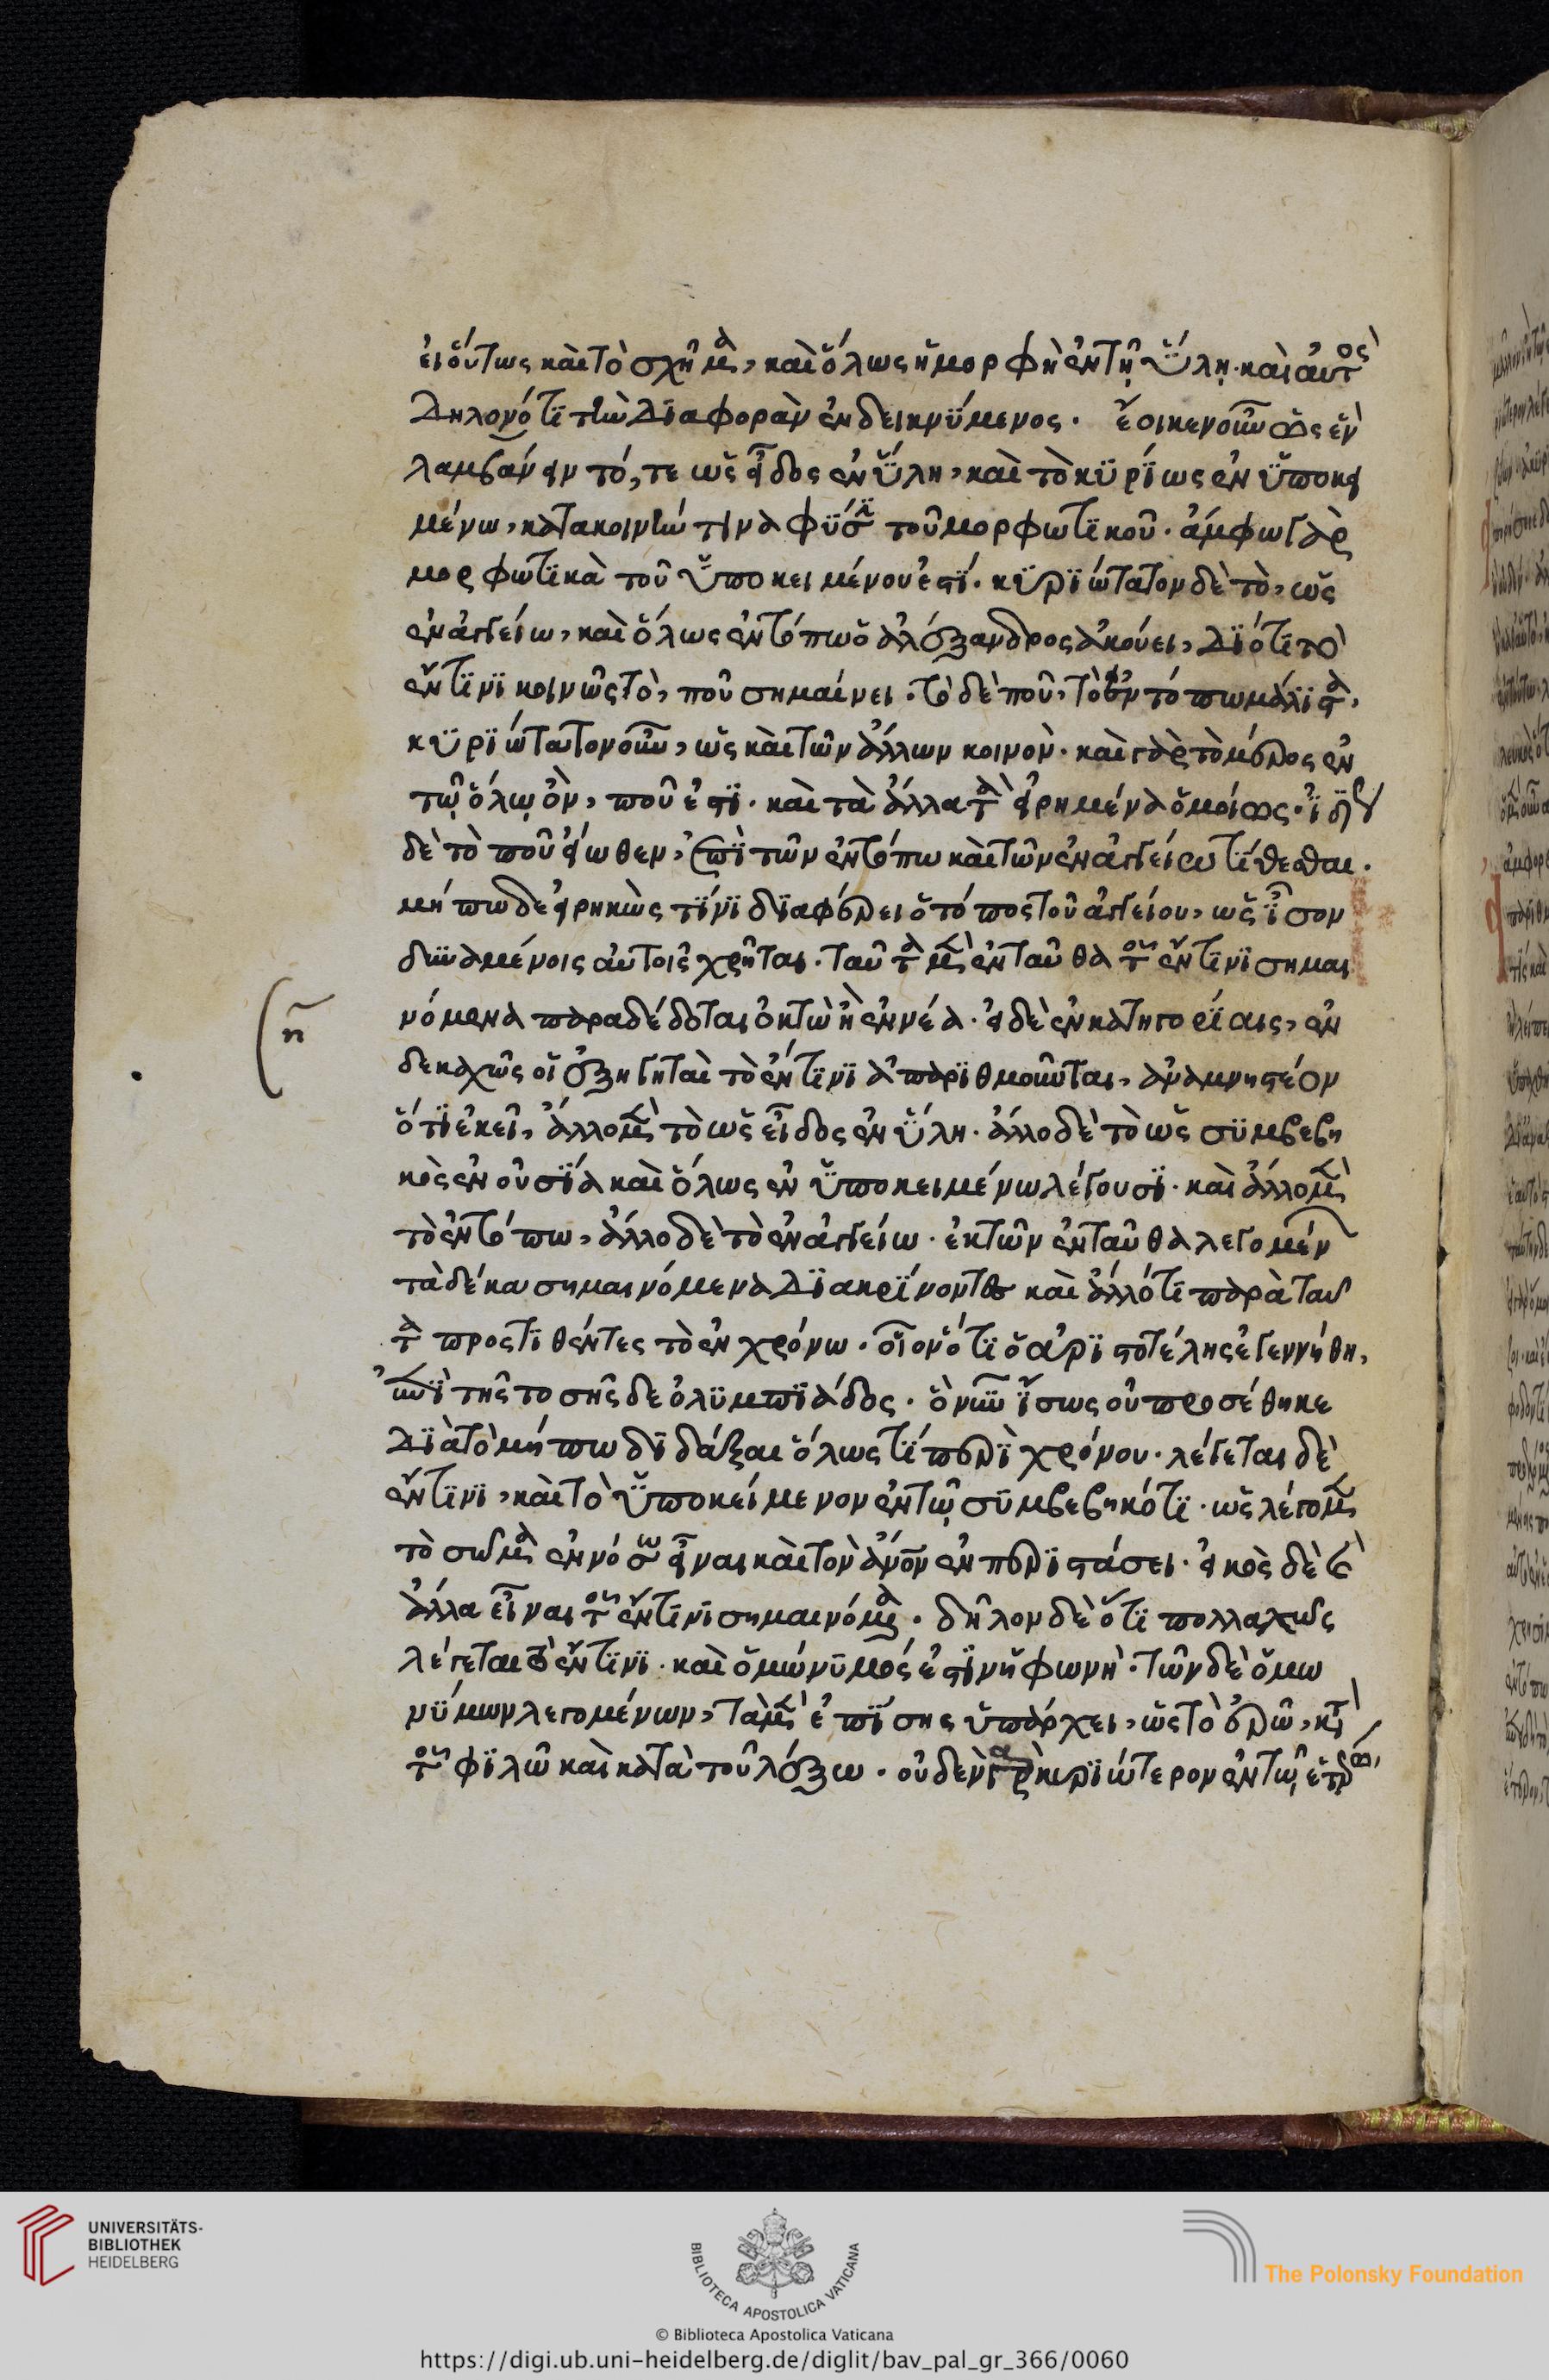 εἰ οὕτως καὶ τὸ σχῆμα, καὶ ὅλως ἡ μορφὴ ἐν τῇ ὕλῃ. καὶ αὐτὸς
δηλονότι τὴν διαφορὰν ἐνδεικνύμενος. ἔοικεν οὖν ὡς ἓν
λαμβάνειν τό, τε ὡς εἶδος ἐν ὕλη, καὶ τὸ κυρίως ἐν ὑποκει
μένω, κατα κοινήν τινα φύσιν τοῦ μορφωτικοῦ. ἄμφω γὰρ
μορφωτικὰ τοῦ ὑποκειμένου ἐστί. κυριώτατον δὲ τὸ, ὡς
ἐν ἀγγείω, καὶ ὅλως ἐν τόπω ὁ ἀλέξανδρος ἀκούει, διότι τὸ
ἔν τινι κοινῶς τὸ, ποῦ σημαίνει. τὸ δὲ ποῦ, τὸ ἐν τόπω μάλιστα,
κυριώτατον οὖν, ὡς καὶ τῶν ἄλλων κοινὸν. καὶ γὰρ τὸ μέρος ἐν
τῷ ὅλῳ ὂν, ποῦ ἐστι. καὶ τὰ ἄλλα τὰ εἰρημένα ὁμοίως.
δὲ τὸ ποῦ εἴωθεν, ἐπὶ τῶν ἐν τόπω καὶ τῶν ἐν ἀγγείω τίθεσθαι.
μήπω δὲ εἰρηκὼς τίνι διαφέρει ὁ τόπος τοῦ ἀγγείου, ὡς ἴσον
δυναμένοις αὐτοῖς χρῆται. ταῦτα μὲν ἐνταῦθα τοῦ ἔν τινι σημαι
νόμενα παραδέδοται ὀκτὼ ἢ ἐννέα. εἰ δὲ ἐν κατηγορίαις, ἐν
δεκαχῶς οἱ ἐξηγηταὶ τὸ ἔν τινι ἀπαριθμοῦνται, ἀναμνηστέον
ὅτι ἐκεῖ, ἄλλο μὲν τὸ ὡς εἶδος ἐν ὕλη. ἄλλο δὲ τὸ ὡς συμβεβη
κὸς ἐν οὐσία καὶ ὅλως ἐν ὑποκειμένω λέγουσι. καὶ ἄλλο μὲν
τὸ ἐν τόπω, ἄλλο δὲ τὸ ἐν ἀγγείω. ἐκ τῶν ἐνταῦθα λεγομένων
τὰ δέκα σημαινόμενα διακρίνοντες καὶ ἄλλό τι παρὰ ταῦ
τα προστιθέντες τὸ ἐν χρόνω. οἷον ὅτι ὁ ἀριστοτέλης ἐγεννήθη,
ἐπὶ τῆς τοσῆς δε ὀλυμπιάδος. ὃ νῦν ἴσως οὐ προσέθηκε
διὰ τὸ μήπω διδάξαι ὅλως τί περὶ χρόνου. λέγεται δὲ
ἔν τινι, καὶ τὸ ὑποκείμενον ἐν τῷ συμβεβηκότι. ὡς λέγομεν
τὸ σῶμα ἐν νόσω εἶναι καὶ τὸν ἄνον ἐν περιστάσει. εἰκὸς δὲ καὶ
ἄλλα εἶναι τοῦ ἔν τινι σημαινόμενα. δῆλον δὲ ὅτι πολλαχῶς
λέγεται τὸ ἔν τινι. καὶ ὁμώνυμός ἐστιν ἡ φωνὴ. τῶν δὲ ὁμω
νύμων λεγομένων, τὰ μὲν ἐπίσης ὑπάρχει, ὡς τὸ ἐρῶ, κατὰ
τοῦ φιλῶ καὶ κατὰ τοῦ λέξω. οὐδὲν γὰρ κυριώτερον ἐν τῷ ἑτέρω,
η
UNIVERSITÄTS-
BIBLIOTHEK
HEIDELBERG
BIBLIOTECA APOSTOLICA VATICANA
© Biblioteca Apostolica Vaticana
The Polonsky Foundation
https://digi.ub.uni-heidelberg.de/diglit/bav_pal_gr_366/0060